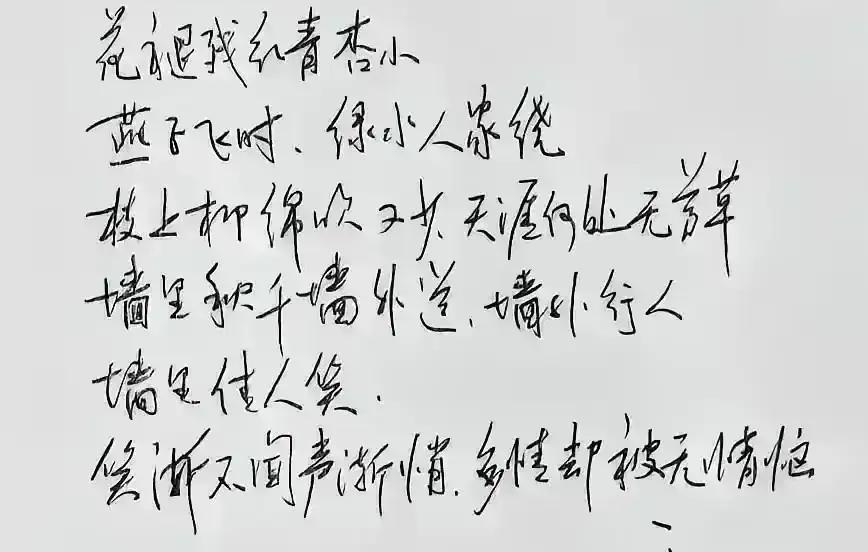 花褪残红青杏小
燕子飞时、绿水人家绕
枝上柳绵吹又少、天涯何处无芳草
墙里秋千墙外道、墙外行人
墙里佳人笑.
笑渐不闻声渐悄、多情却被无情恼